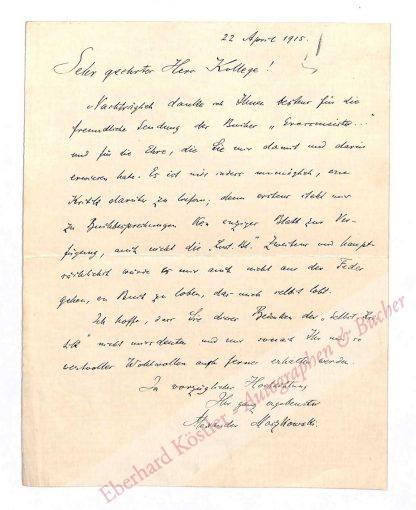 22 April 1915.
Sehr geehrter Herr Kollege!
Nachträglich danke ich Ihnen bestens für die
freundliche Sendung des Buches "
und für die Ehre, die Sie mir damit und darin
erwiesen habe. Es ist mir indess unmöglich, eine
Kritik darüber zu liefern, denn erstens steht mir
zu Buchbesprechungen kein einziges Blatt zur Ver-
fügung, auch nicht die „Lust. Bl." Zweitens und haupt-
sächlichst würde es mir auch nicht aus der Feder
gehen, ein Buch zu loben, das mich selbst lobt.
Ich hoffe, dass Sie dieses Bedenken der „Selbst-
" nicht missdeuten und mir Ihr mir so
wertvolles Wohlwollen auch ferner erhalten werden.
In vorzüglicher Hochachtung
Ihr ganz ergebenster
Alexander Moszkowski.
Eberhard Köstler - Autographen & Bücher